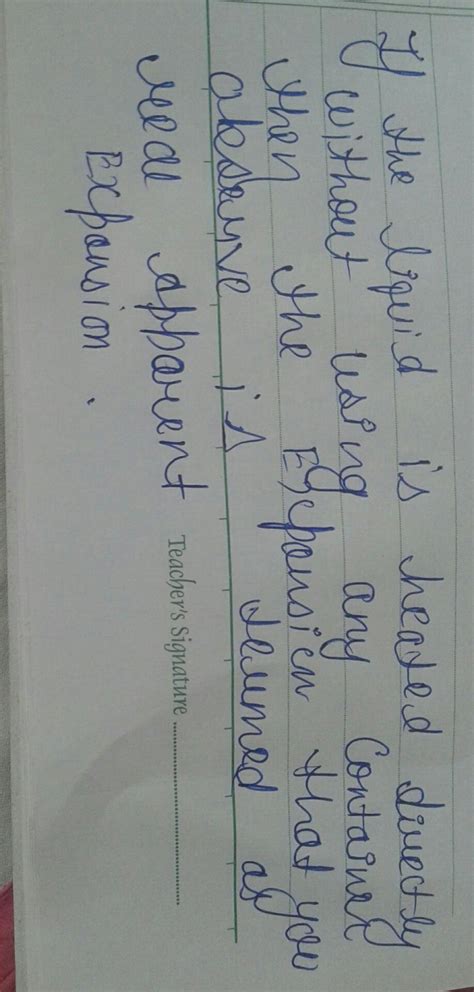 If the liquid is heated directly
without using any Container
then the Expansion that you
obsurve is termed as
real apparent
Expansion.
Teacher's Signature